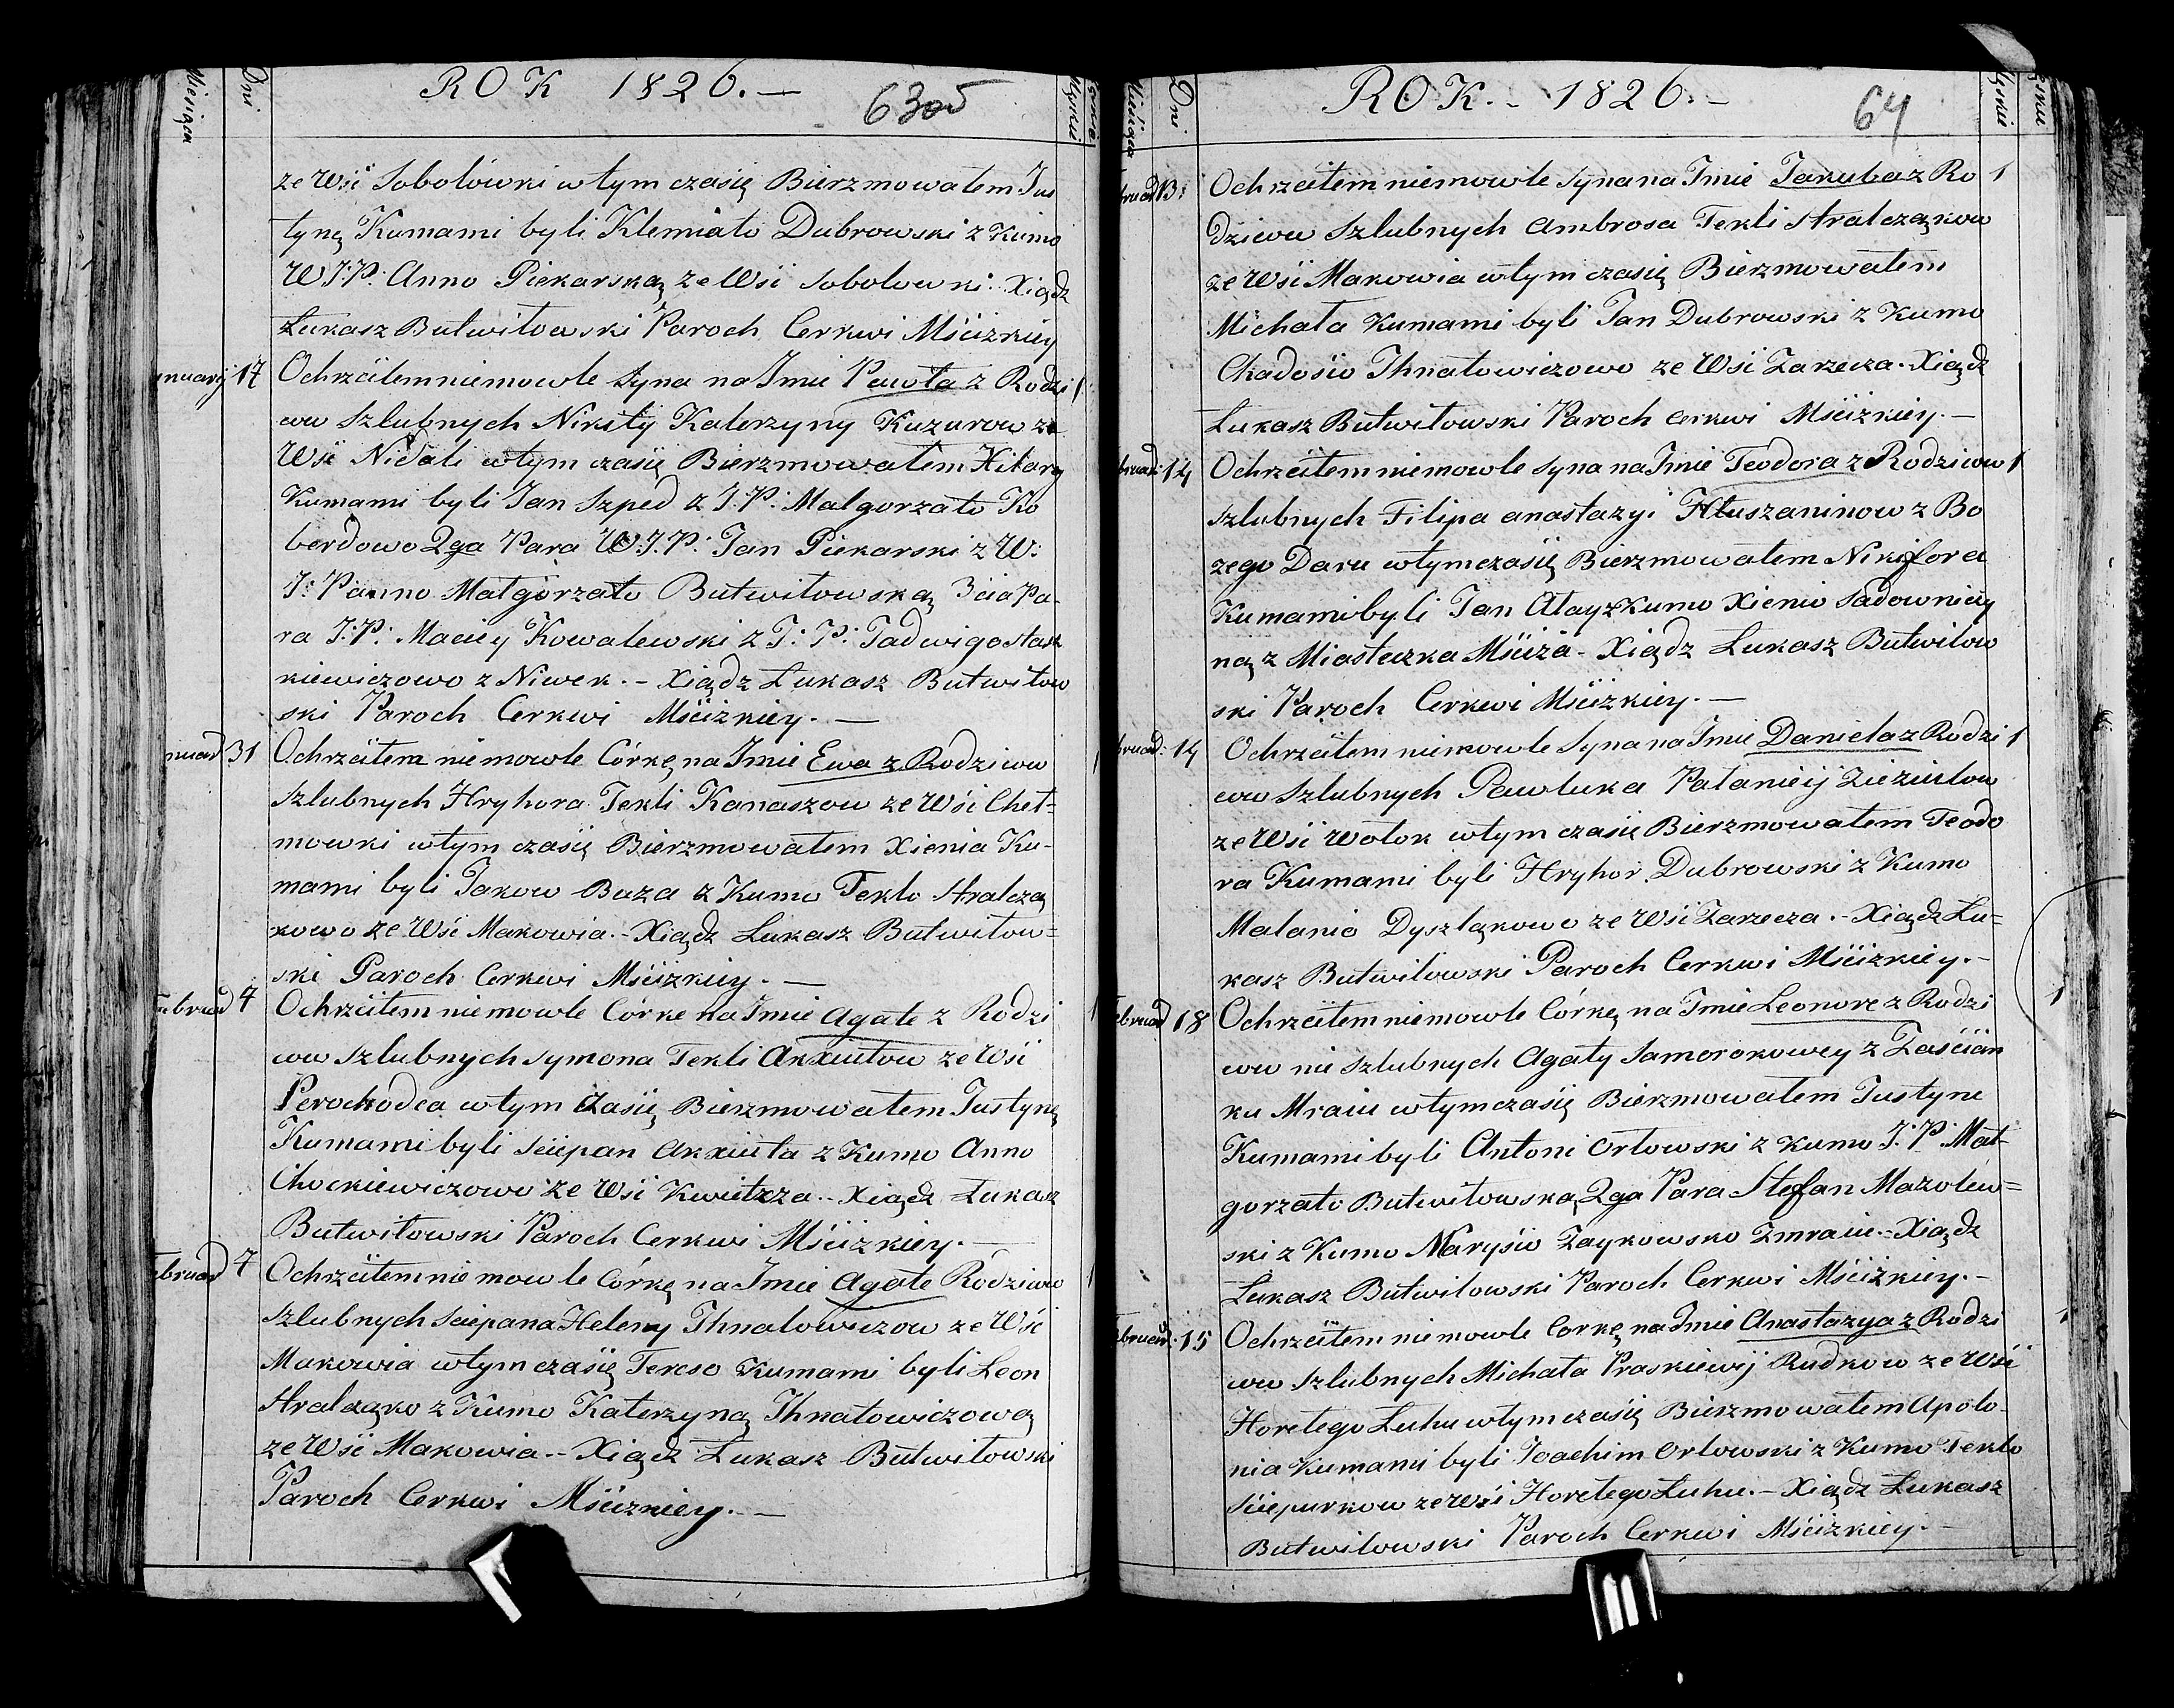 Miesiąca Dni ROK 1826.— 63 Męskie Żeńskie
ze Wsi Sobolówki w tym czasię Bierzmowałem Jus
tynę Kumami byli Klemiato Dubrowski z Kumo
W J:P: Anno Piekarską ze Wsi Sobolowki. Xiądz
Łukasz Butwiłowski Paroch Cerkwi Mściżkiey
nuarij 17 Ochrzciłem niemowle Syna na Jmie Pawła z Rodzi 1
ców Szlubnych Nikity Katerzyny Kuzurow ze
Wsi Nidali w tym czasię Bierzmowałem Hilary
Kumami byli Jan Szped z J:P: Malgorzato Ko
berdowo 2ga Para W:J:P: Jan Piekarski z W:
J: Panno Małgorzato Butwiłowską 3cia Pa-
ra J:P: Maciey Kowalewski z J:P: Jadwigo Stasz
kiewiczowo z Niwek.– Xiądz Łukasz Butwiłow
ski Paroch Cerkwi Mściżkiey.—
nuad 31 Ochrzciłem niemowle Córkę na Jmie Ewa z Rodziców 1
Szlubnych Hryhora Tekli Kanaszow ze Wśi Cheł=
mowki w tym czasię Bierzmowałem Xienia Ku-
mami byli Jakow Buza z Kumo Teklo Stralczą
kowo ze Wśi Makowia.– Xiądz Łukasz Butwiłow=
ski Paroch Cerkwi Mściżkiey.—
ebruad 7 Ochrzciłem niemowle Córke na Jmie Agate z Rodzi 1
ców Szlubnych Symona Tekli Axiutow ze Wśi
Perochodca w tym czasię Bierzmowałem Justynę
Kumami byli Sciepan Axiuta z Kumo Anno
Chockiewiczowo ze Wśi Kwitcza.– Xiądz Łukasz
Butwiłowski Paroch Cerkwi Mściżkiey.—
ebruad 7 Ochrzciłem niemowle Córkę na Jmie Agate Rodziców 1
Szlubnych Sciepana Heleny Jhnatowiczow ze Wśi
Makowia w tym czasię Tereso Kumami byli Leon
Stralczko z Kumo Katerzyną Jhnatowiczową
ze Wśi Makowia.– Xiądz Łukasz Butwiłowski
Paroch Cerkwi Mściżkiey.—
Miesiąca Dni ROK.– 1826.– 64 Męskie Żeńskie
bruad 13: Ochrzciłem niemowle Syna na Jmie Jakuba z Ro 1
dziców Szlubnych Ambrosa Tekli Stralcząkow
ze Wśi Makowia w tym czasię Bierzmowałem
Michała Kumami byli Jan Dubrowski z Kumo
Chadosio Jhnatowiczowo ze Wśi Zarzecza. Xiądz
Łukasz Butwiłowski Paroch Cerkwi Mściżkiey.—
bruad: 14 Ochrzciłem niemowle Syna na Jmie Teodora z Rodziców 1
Szlubnych Filipa Anastazyi Hłuszaninow z Bo
żego Daru w tym czasię Bierzmowałem Nikifora
Kumami byli Jan Ałay z Kumo Xienio Sadownicy
ną z Miasteczka Mściża – Xiądz Łukasz Butwiłow
ski Paroch Cerkwi Mściżkiey.—
bruad: 14 Ochrzciłem niemowle Syna na Jmie Daniela z Rodzi 1
ców Szlubnych Pawluka Pałanieij Zieziulow
ze Wśi Wołok w tym czasię Bierzmowałem Teodo
ra Kumami byli Hryhor Dubrowski z Kumo
Malanio Dyszląkowo ze Wśi Zarzecza.– Xiądz Łu=
kasz Butwiłowski Paroch Cerkwi Mściżkiey.–
ebruad 18 Ochrzciłem niemowle Córkę na Jmie Leonore z Rodzi 1
ców nie Szlubnych Agaty Samorokowey z Zaścian
ku Mraiu w tym czasię Bierzmowałem Justyne
Kumami byli Antoni Orłowski z Kumo J:P: Mał-
gorzato Butwiłowską 2ga Para Stefan Mazolew=
ski z Kumo Marysio Zaykowsko Zmraiu.– Xiądz
Łukasz Butwiłowski Paroch Cerkwi Mściżkiey.–
bruad: 15 Ochrzciłem niemowle Corkę na Jmie Anastazya z Rodzi 1
ców Szlubnych Michała Praskiewij Rudkow ze Wśi
Horełego Łuhu w tym czasię Bierzmowałem Apolo-
nia Kumami byli Joachim Orłowski z Kumo Teklo
Sciepurkow ze Wśi Horełego Łuhu.– Xiądz Łukasz
Butwiłowski Paroch Cerkwi Mściżkiey.–